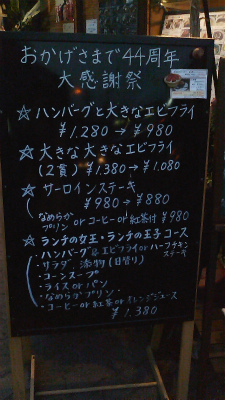 おかげさまで44周年
大感謝祭
☆ハンバーグと大きなエビフライ
¥1.280→¥980
☆大きな大きなエビフライ
(2貫)¥1.380→¥1.080
☆サーロインステーキ
¥980→¥880
なめらかプリン or コーヒー or 紅茶付 ¥980
☆ランチの女王・ランチの王子コース
・ハンバーグ エビフライ or ハーフチキンステーキ
・サラダ 漬物(日替り)
・コーンスープ
・ライス or パン
・なめらかプリン・
・コーヒー or 紅茶 or オレンジジュース
¥1.380